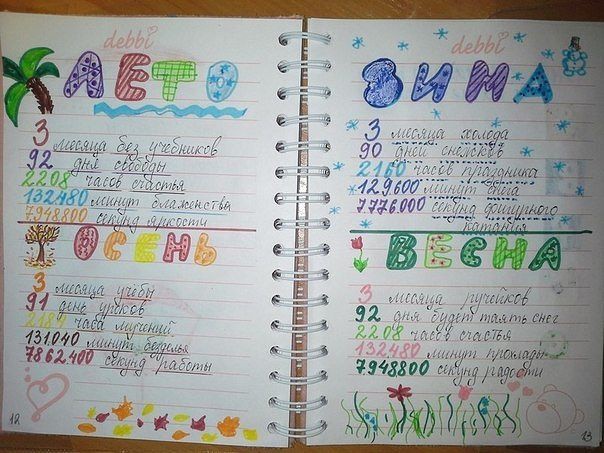 debbi
ЛЕТО
3 месяца без учебников
92 дня свободы
2208 часов счастья
132480 минут блаженства
7948800 секунд яркости
ОСЕНЬ
3 месяца учёбы
91 день уроков
2184 часа мучений
131.040 минут безделья
7862.400 секунд работы
12
debbi
ЗИМА
3 месяца холода
90 дней снежков
2160 часов праздника
129600 минут снега
7.776.000 секунд фигурного
катания
ВЕСНА
3 месяца ручейков
92 дня будет таять снег
2208 часов счастья
132480 минут прохлады
7948800 секунд радости
13